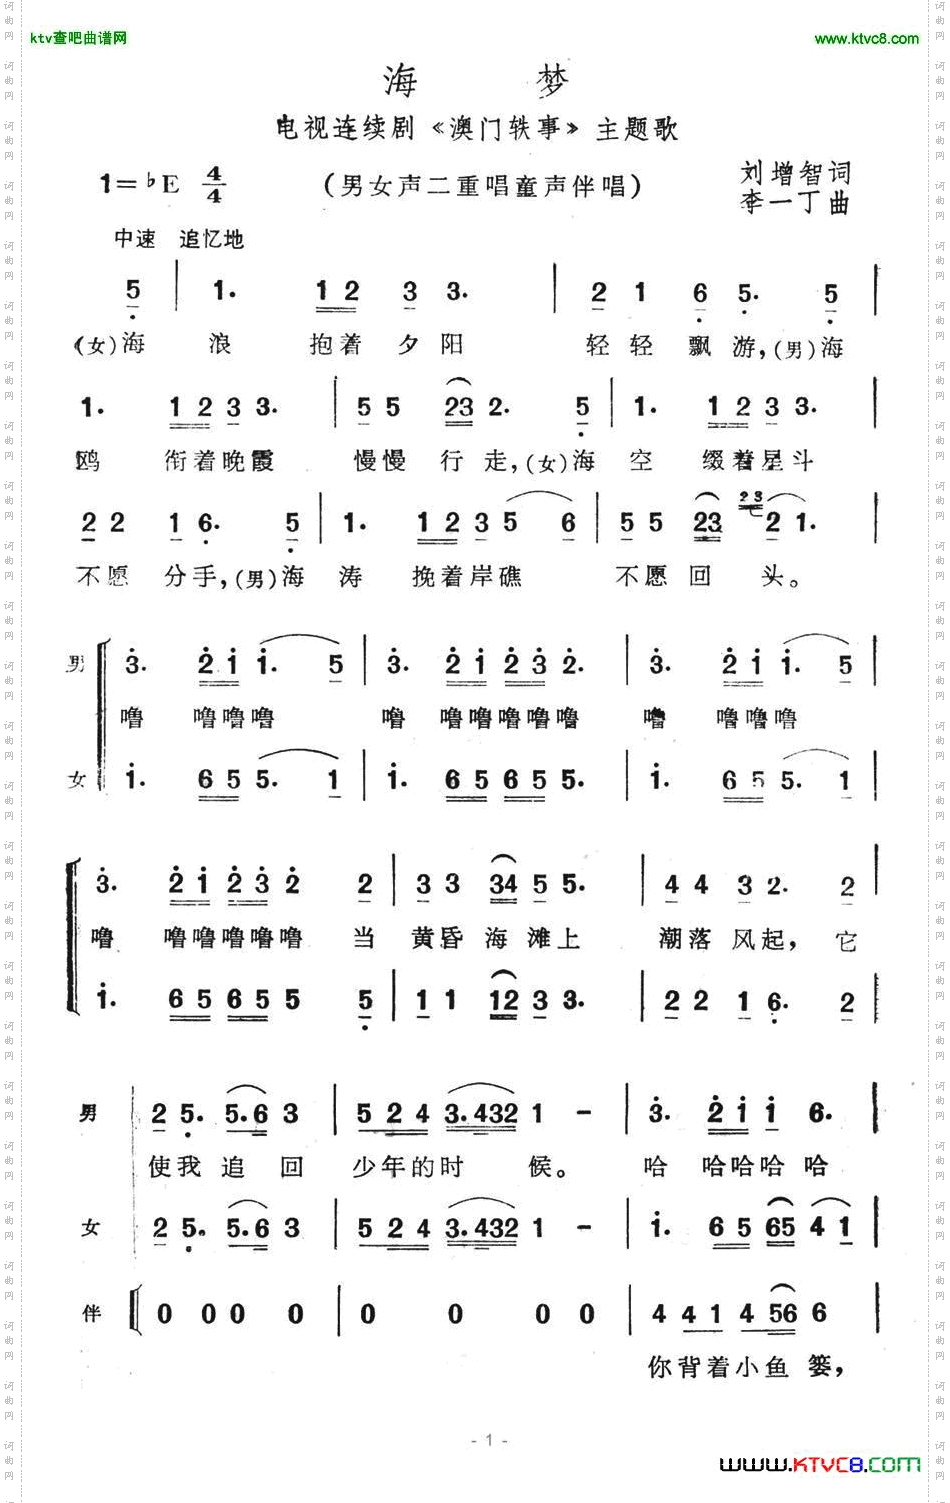 ktv查吧曲谱网 www.ktvc8.com
海 梦
电视连续剧《澳门轶事》主题歌
1=♭E 4/4 (男女声二重唱童声伴唱) 刘增智词
李一丁曲
中速 追忆地
5 | 1. 12 3 3. | 2 1 6 5. 5 |
(女)海 浪 抱着夕阳 轻轻飘游,(男)海
1. 1 2 3 3. | 5 5 23 2. 5 | 1. 1 2 3 3. |
鸥 衔着晚霞 慢慢行走,(女)海 空 缀着星斗
2 2 1 6. 5 | 1. 1 2 3 5 6 | 5 5 23 23 2 1. |
不愿分手,(男)海 涛 挽着岸礁 不愿回 头。
男 3. 2 1 1. 5 | 3. 2 1 2 3 2. | 3. 2 1 1. 5 |
噜 噜噜噜 噜 噜噜噜噜噜 噜 噜噜噜
女 1. 6 5 5. 1 | 1. 6 5 6 5 5. | 1. 6 5 5. 1 |
3. 2 1 2 3 2 2 | 3 3 34 5 5. | 4 4 3 2. 2 |
噜 噜噜噜噜噜 当 黄昏海滩上 潮落风起, 它
1. 6 5 6 5 5 5 | 1 1 12 3 3. | 2 2 1 6. 2
男 2 5. 5.6 3 | 5 2 4 3.432 1 - | 3. 2 1 1 6. |
使我 追 回 少年的时 候。 哈 哈哈哈 哈
女 2 5. 5.6 3 | 5 2 4 3.432 1 - | 1. 6 5 65 4 1 |
伴 0 0 0 0 0 | 0 0 0 0 0 | 4 4 1 4 56 6 |
你背着小鱼篓,
- 1 -
www.KTVC8.com